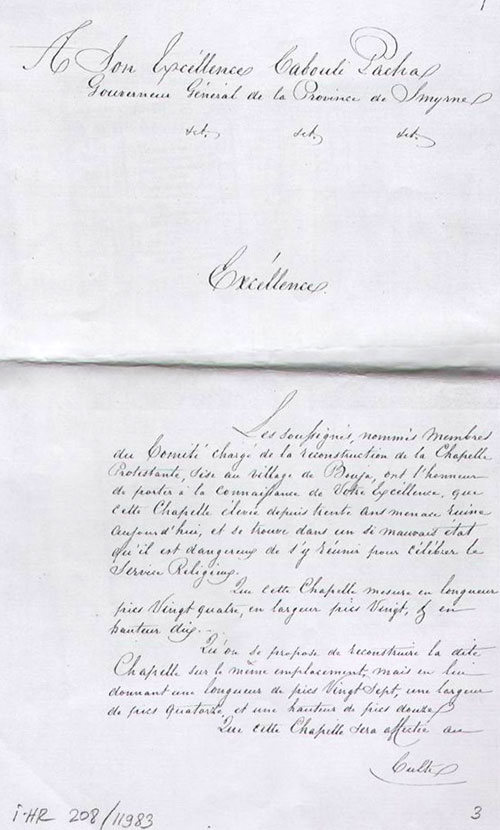 A Son Excéllence Cabouli Pacha
Gouverneur Général de la Province de Smyrne
etc. etc. etc.
Excéllence.
Les soussignés, nommés Membres
du Comité chargé de la reconstruction de la Chapelle
Protestante, sise au village de Bouja, ont l'honneur
de porter à la connaissance de Votre Excéllence, que
cette Chapelle élevée depuis trente ans menace ruine
aujourd'hui, et se trouve dans un si mauvais état
qu'il est dangereux de s'y réunir pour célébrer le
Service Religieux.
Que cette Chapelle mesure en longueur
pics Vingt quatre, en largeur pics Vingt, & en
hauteur dix.
Qu'on se propose de reconstruire la dite
Chapelle sur le même emplacement, mais en lui
donnant une longueur de pics Vingt Sept, une largeur
de pics quatorze, et une hauteur de pics douze.
Que cette Chapelle sera affectée au
Culte
i-HR 208/11983
3